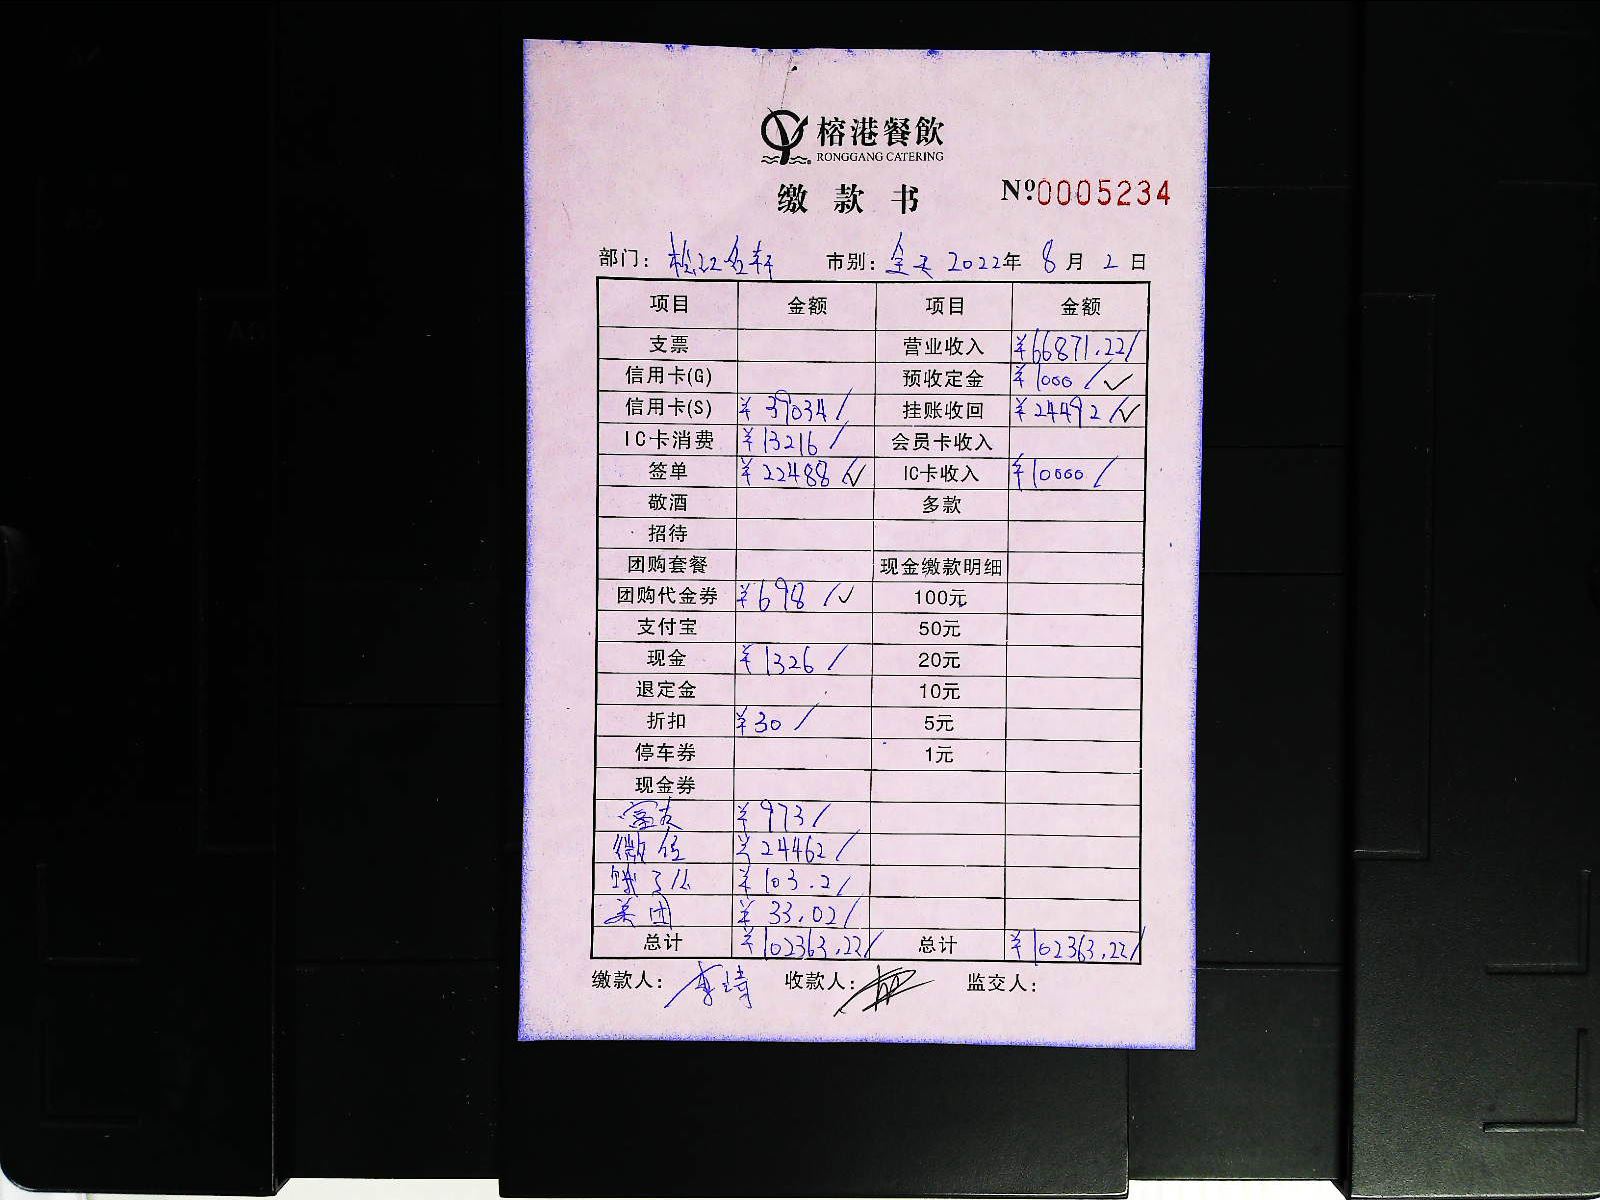 榕港餐飲
RONGGANG CATERING
缴款书 №0005234
部门: 松江名轩 市别: 全天 2022年 8月 2日
项目 金额 项目 金额
支票 营业收入 ¥66871.22/
信用卡(G) 预收定金 ¥1000/✓
信用卡(S) ¥39034/ 挂账收回 ¥24492/✓
IC卡消费 ¥13216/ 会员卡收入
签单 ¥22488/✓ IC卡收入 ¥10000/
敬酒 多款
招待
团购套餐 现金缴款明细
团购代金券 ¥698/✓ 100元
支付宝 50元
现金 ¥1326/ 20元
退定金 10元
折扣 ¥30/ 5元
停车券 1元
现金券
富友 ¥973/
微信 ¥24462/
饿了么 ¥103.2/
美团 ¥33.02/
总计 ¥102363.22/ 总计 ¥102363.22/
缴款人: 李琦 收款人: 监交人: